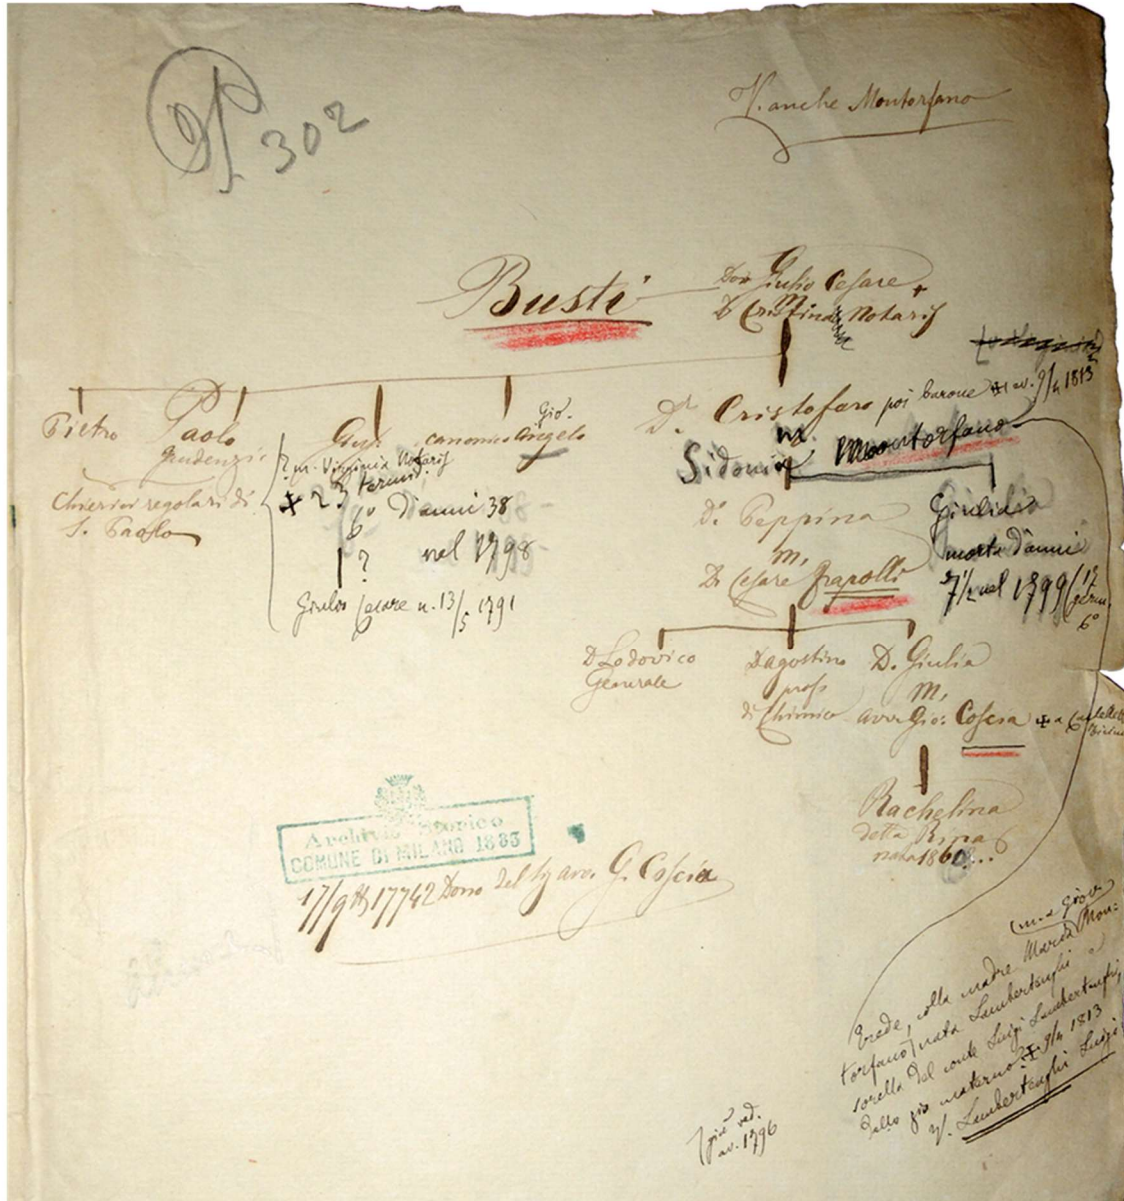 302
V. anche Montorfano
Busti
Don Giulio Cesare
m.
D. Cristina Notaris
Pietro
Paolo
Chierici regolari di
S. Paolo
Giul.
? m. Virginia Notaris
canonico
Gio.
Angelo
d'anni 38
nel 1798
?
Giulio Cesare n. 13/5 1791
D. Cristoforo poi barone av. 9/4 1813
m.
Sidonia Montorfano
Da. Peppina
m.
D. Cesare Frapolli
Giulia
morta d'anni
7 1/2 nel 1799
6°
D. Lodovico
Generale
D. Agostino
profs
di Chimica
D. Giulia
m.
avv. Gio: Coscia
Rachelina
detta Rina
nata 1860...
Archivio Storico
COMUNE DI MILANO 1883
17742 Dono del Sig avv. G. Coscia
Erede, colla madre Maria Mon:
torfano nata Lambertenghi
sorella del conte Luigi Lambertenghi,
dello zio materno 9/4 1813
V. Lambertenghi Luigi
già ved.
av. 1796